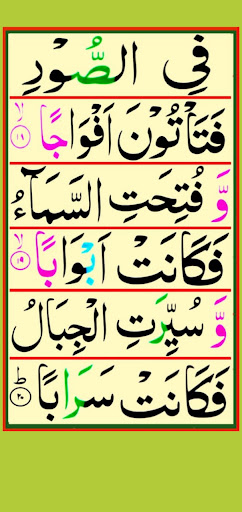 فِي الصُّوْرِ
فَتَاْتُوْنَ اَفْوَاجًا ۙ﴿۱۸﴾
وَّ فُتِحَتِ السَّمَآءُ
فَكَانَتْ اَبْوَابًا ۙ﴿۱۹﴾
وَّ سُيِّرَتِ الْجِبَالُ
فَكَانَتْ سَرَابًا ؕ﴿۲۰﴾